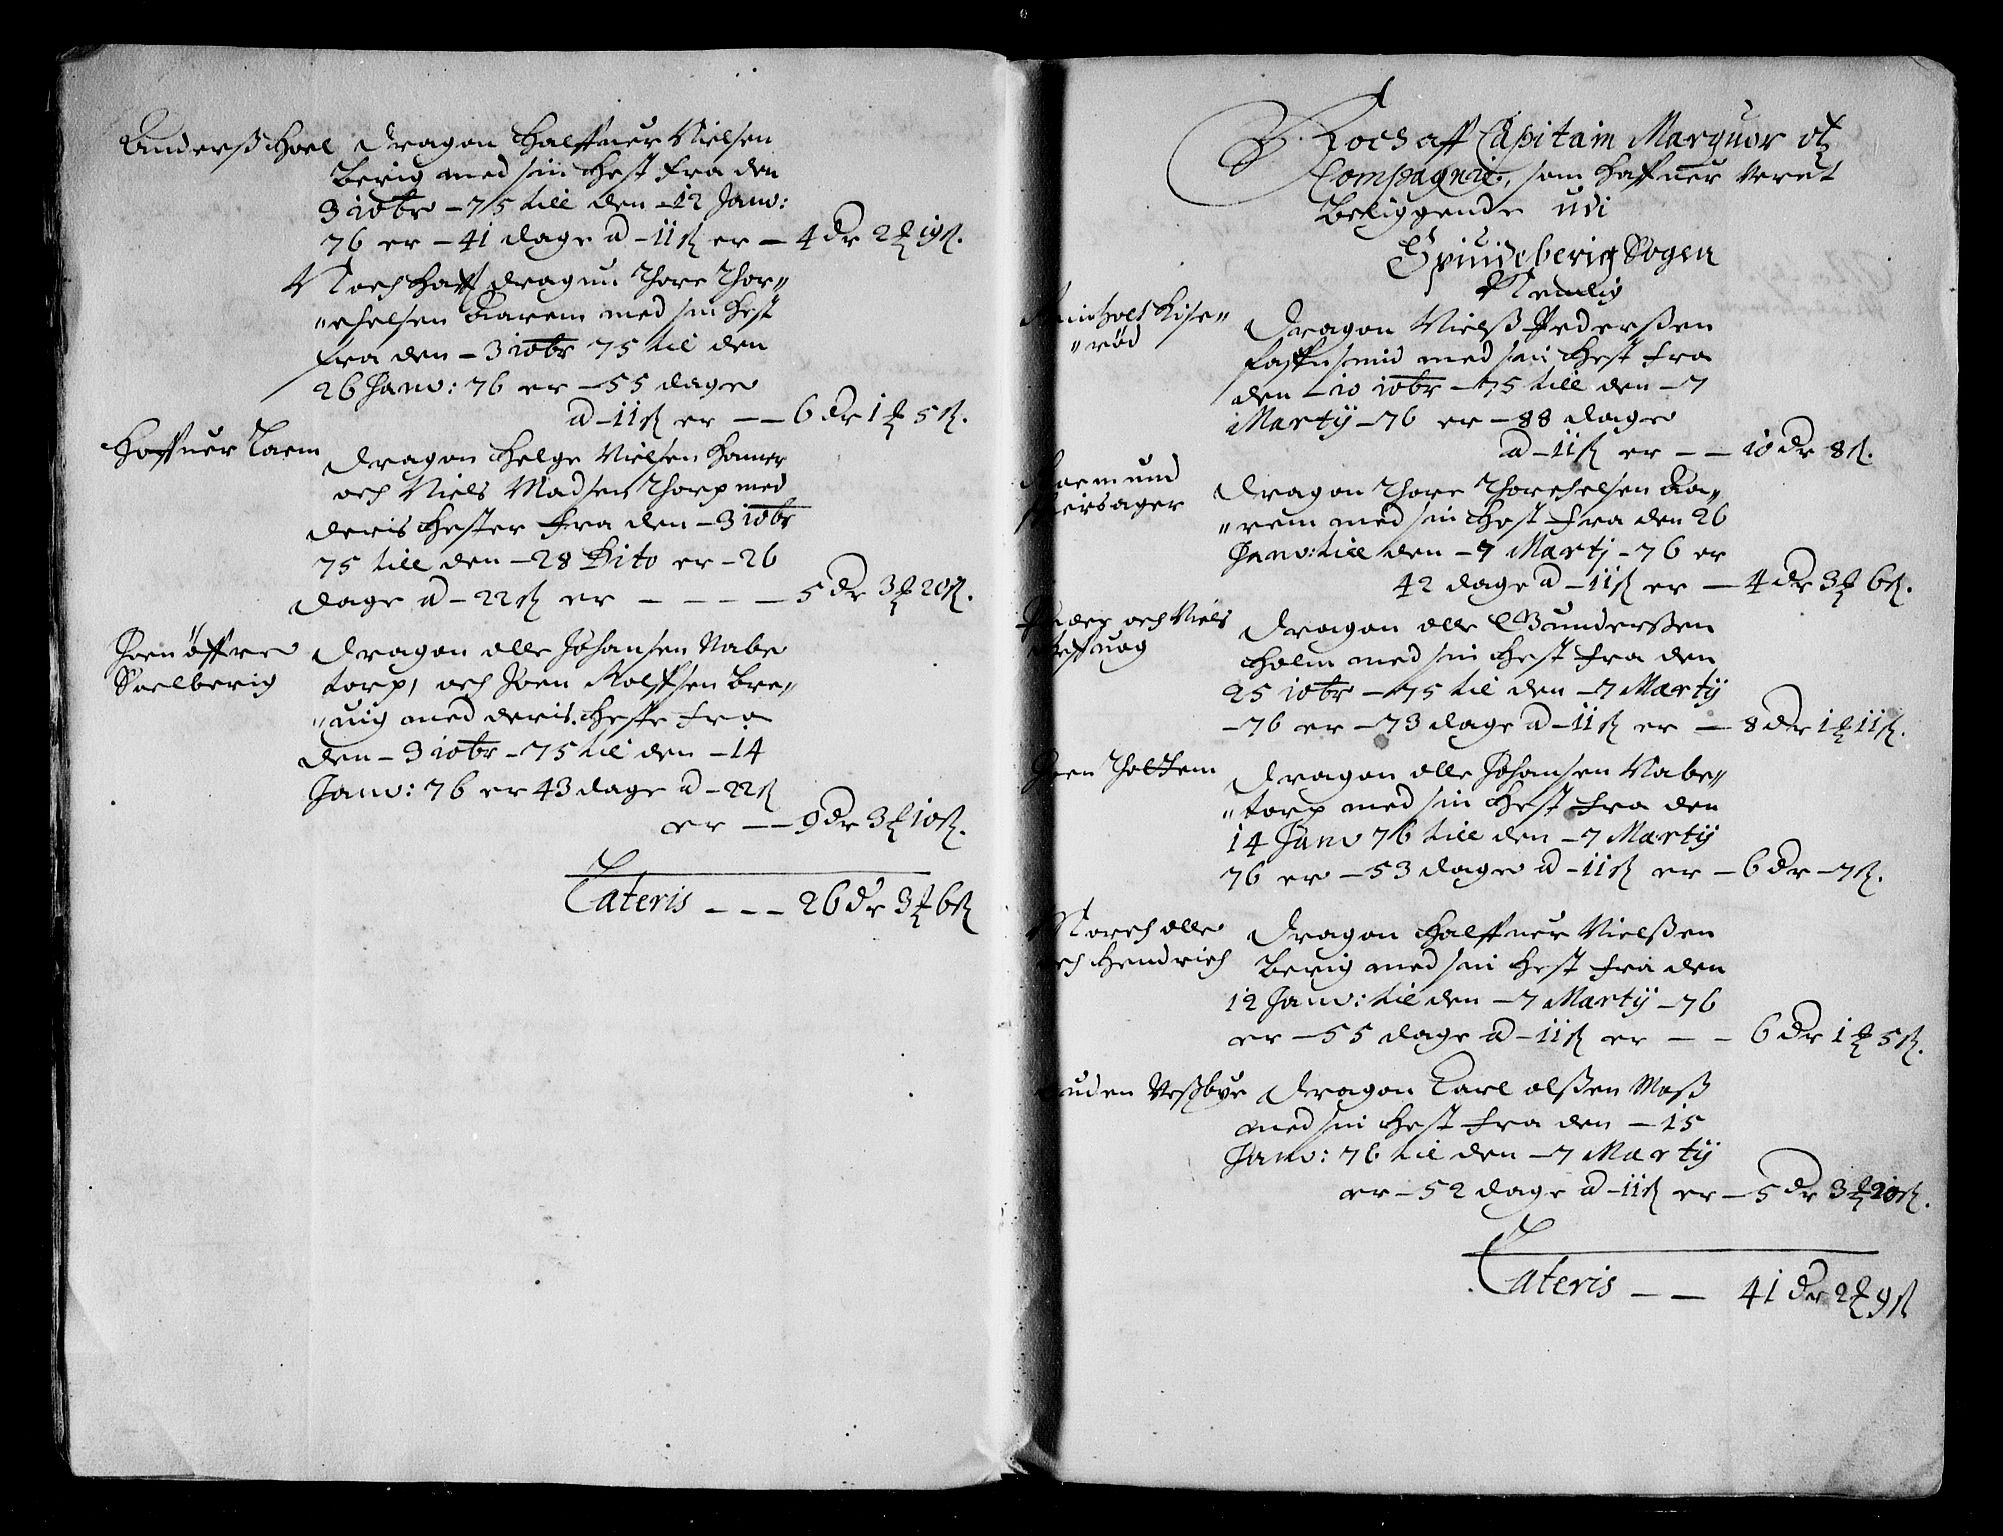 Anderß Hoel Dragon Halffuer Nielsen
Berig med sin Hest fra den
3 10br – 75 till den – 12 Janv:
76 er – 41 dage a – 11 ß er – 4 dr 2 ₰ 19 ß.
Noch haff dragun Thore Thor-
"chelsen Aarem med sin Hest
fra den – 3 10br 75 til den
26 Janv: 76 er – 55 dage
a – 11 ß er – – 6 dr 1 ₰ 5 ß.
Hoffuer Laem
Dragon Helge Nielsen Hamer
och Niels Madsen Thorp med
deris Hester fra den – 3 10br
75 till den – 28 Dito er – 26
dage a – 22 ß er – – – – 5 dr 3 ₰ 20 ß.
Joen öffre
Soelberig
Dragon olle Johansen Nabe
torp, och Joen Rolffsen Bre-
"uig med deris Heste fra
den – 3 10br – 75 til den – 14
Janv: 76 er 43 dage a – 22 ß
er – – 9 dr 3 ₰ 10 ß.
Lateris – – – 26 dr 3 ₰ 6 ß
Noch aff Capitain Marquor
Compagnie, som haffuer veret
beliggende udi
Spindeberig Sogen
Nemlig
Kise-
"röd
Dragon Nielß Pederßen
med sin Hest fra
den – 10 10br – 75 till den – 7
Martij – 76 er – 88 dage
a – 11 ß er – – 10 dr 8 ß.
Dragon Thore Thorchelsen Aa-
"rem med sin Hest fra den 26
Janv: till den – 7 Martj – 76 er
42 dage a – 11 ß er – 4 dr 3 ₰ 6 ß.
Peder och Niels
Dragon olle Gunderßen
Holm med sin Hest fra den
25 10br – 75 til den – 7 Martij
– 76 er – 73 dage a – 11 ß er – 8 dr 1 ₰ 11 ß.
Joen Holtem
Dragon olle Johansen Nabe-
"torp med sin Hest fra den
14 Janv 76 till den – 7 Martij
76 er – 53 dage a – 11 ß er – 6 dr – 7 ß.
olle
och Hendrich
Dragon Halffuer Nielßen
Berig med sin Hest fra den
12 Janv: til den – 7 Martij – 76
er – 55 dage a – 11 ß er – – 6 dr 1 ₰ 5 ß.
Auden Veßbye Dragon Carl olßen Moß
med sin Hest fra den – 15
Janv: 76 til den – 7 Martij
er – 52 dage a – 11 ß er – 5 dr 3 ₰ 20 ß.
Lateris – – 41 dr 2 ₰ 9 ß